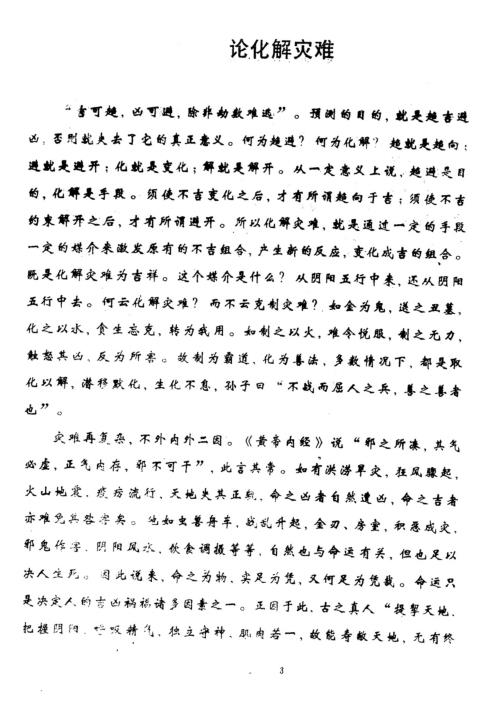 论化解灾难
“吉可趋，凶可避，除非劫数难逃”。预测的目的，就是趋吉避
凶，否则就失去了它的真正意义。何为趋避？何为化解？趋就是趋向；
避就是避开；化就是变化；解就是解开。从一定意义上说，趋避是目
的，化解是手段。须使不吉变化之后，才有所谓趋向于吉；须使不吉
约束解开之后，才有所谓避开。所以化解灾难，就是通过一定的手段
一定的媒介来激发原有的不吉组合，产生新的反应，变化成吉的组合。
既是化解灾难为吉祥。这个媒介是什么？从阴阳五行中来，还从阴阳
五行中去。何云化解灾难？而不云克制灾难？如金为鬼，送之丑墓，
化之以水，贪生忘克，转为我用。如制之以火，难令悦服，制之无力，
触怒其凶、反为所害。故制为霸道，化为善法，多数情况下，都是取
化以解，潜移默化，生化不息，孙子曰“不战而屈人之兵，善之善者
也”。
灾难再复杂，不外内外二因。《黄帝内经》说“邪之所凑，其气
必虚，正气内存，邪不可干”，此言其常。如有洪涝旱灾，狂风骤起，
火山地震、疫疠流行、天地失其正轨，命之凶者自然遭凶，命之吉者
亦难免其咎矣。他如虫兽舟车，战乱升起，金刃、房室，积恶成灾，
邪鬼作孽、阴阳风水、饮食调摄等等，自然也与命运有关，但也足以
决人生死。因此说来，命之为物，实足为凭，又何足为凭哉。命运只
是决定人的吉凶祸福诸多因素之一。正因于此，古之真人“提挈天地、
把握阴阳、呼吸精气、独立守神、肌肉若一，故能寿敝天地，无有终
3